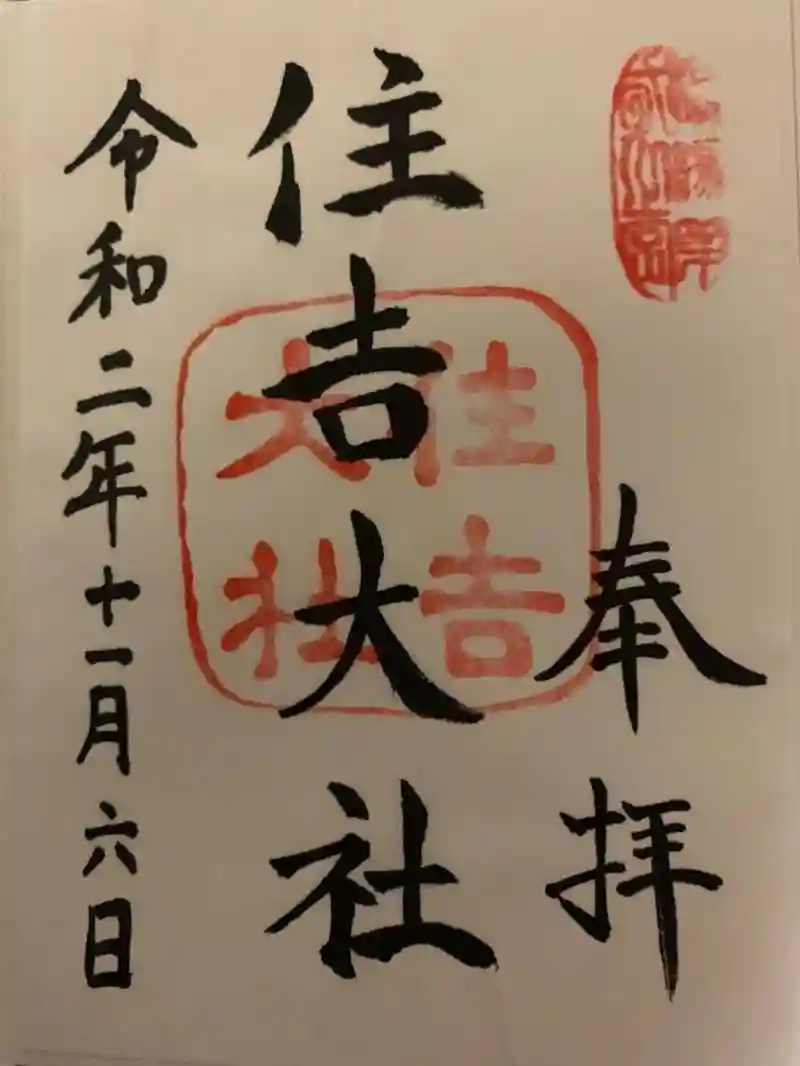 奉拝
住吉大社
住吉
大社
令和二年十一月六日